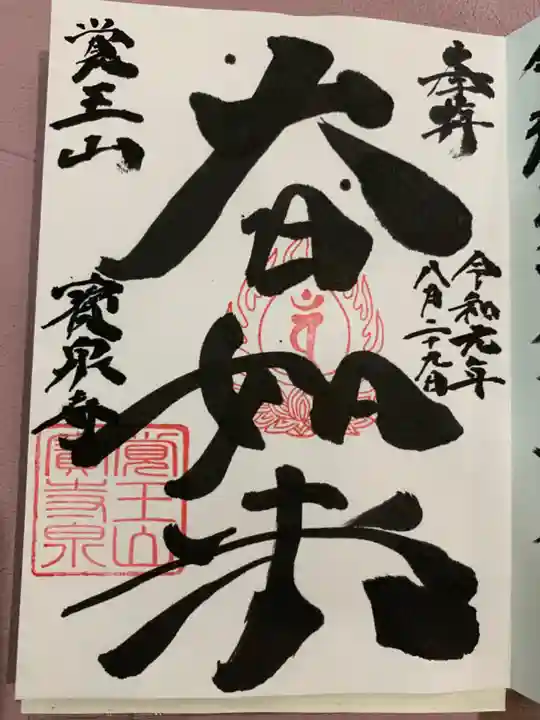 奉拝
令和元年
八月二十九日
大日如来
覚王山
寳泉寺
覺王山
寳泉寺